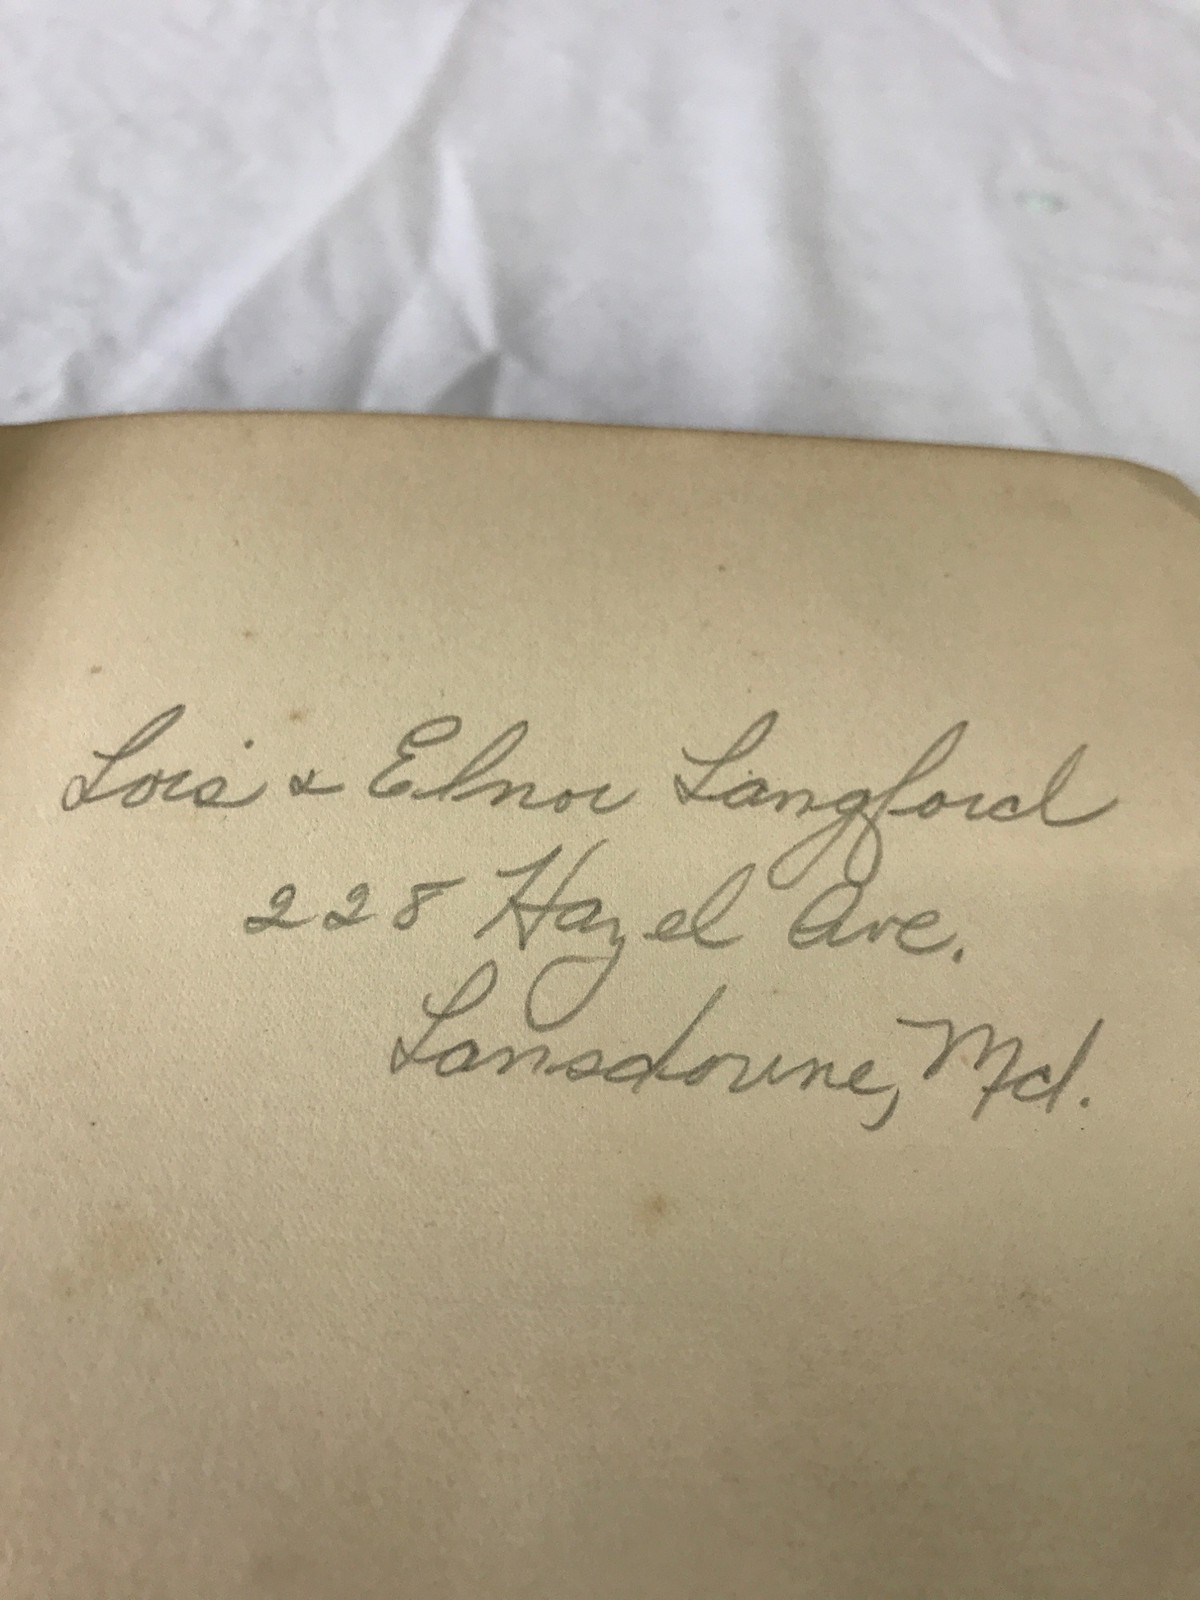 Lois & Elnor Langford
228 Hazel Ave.
Lansdowne, Md.